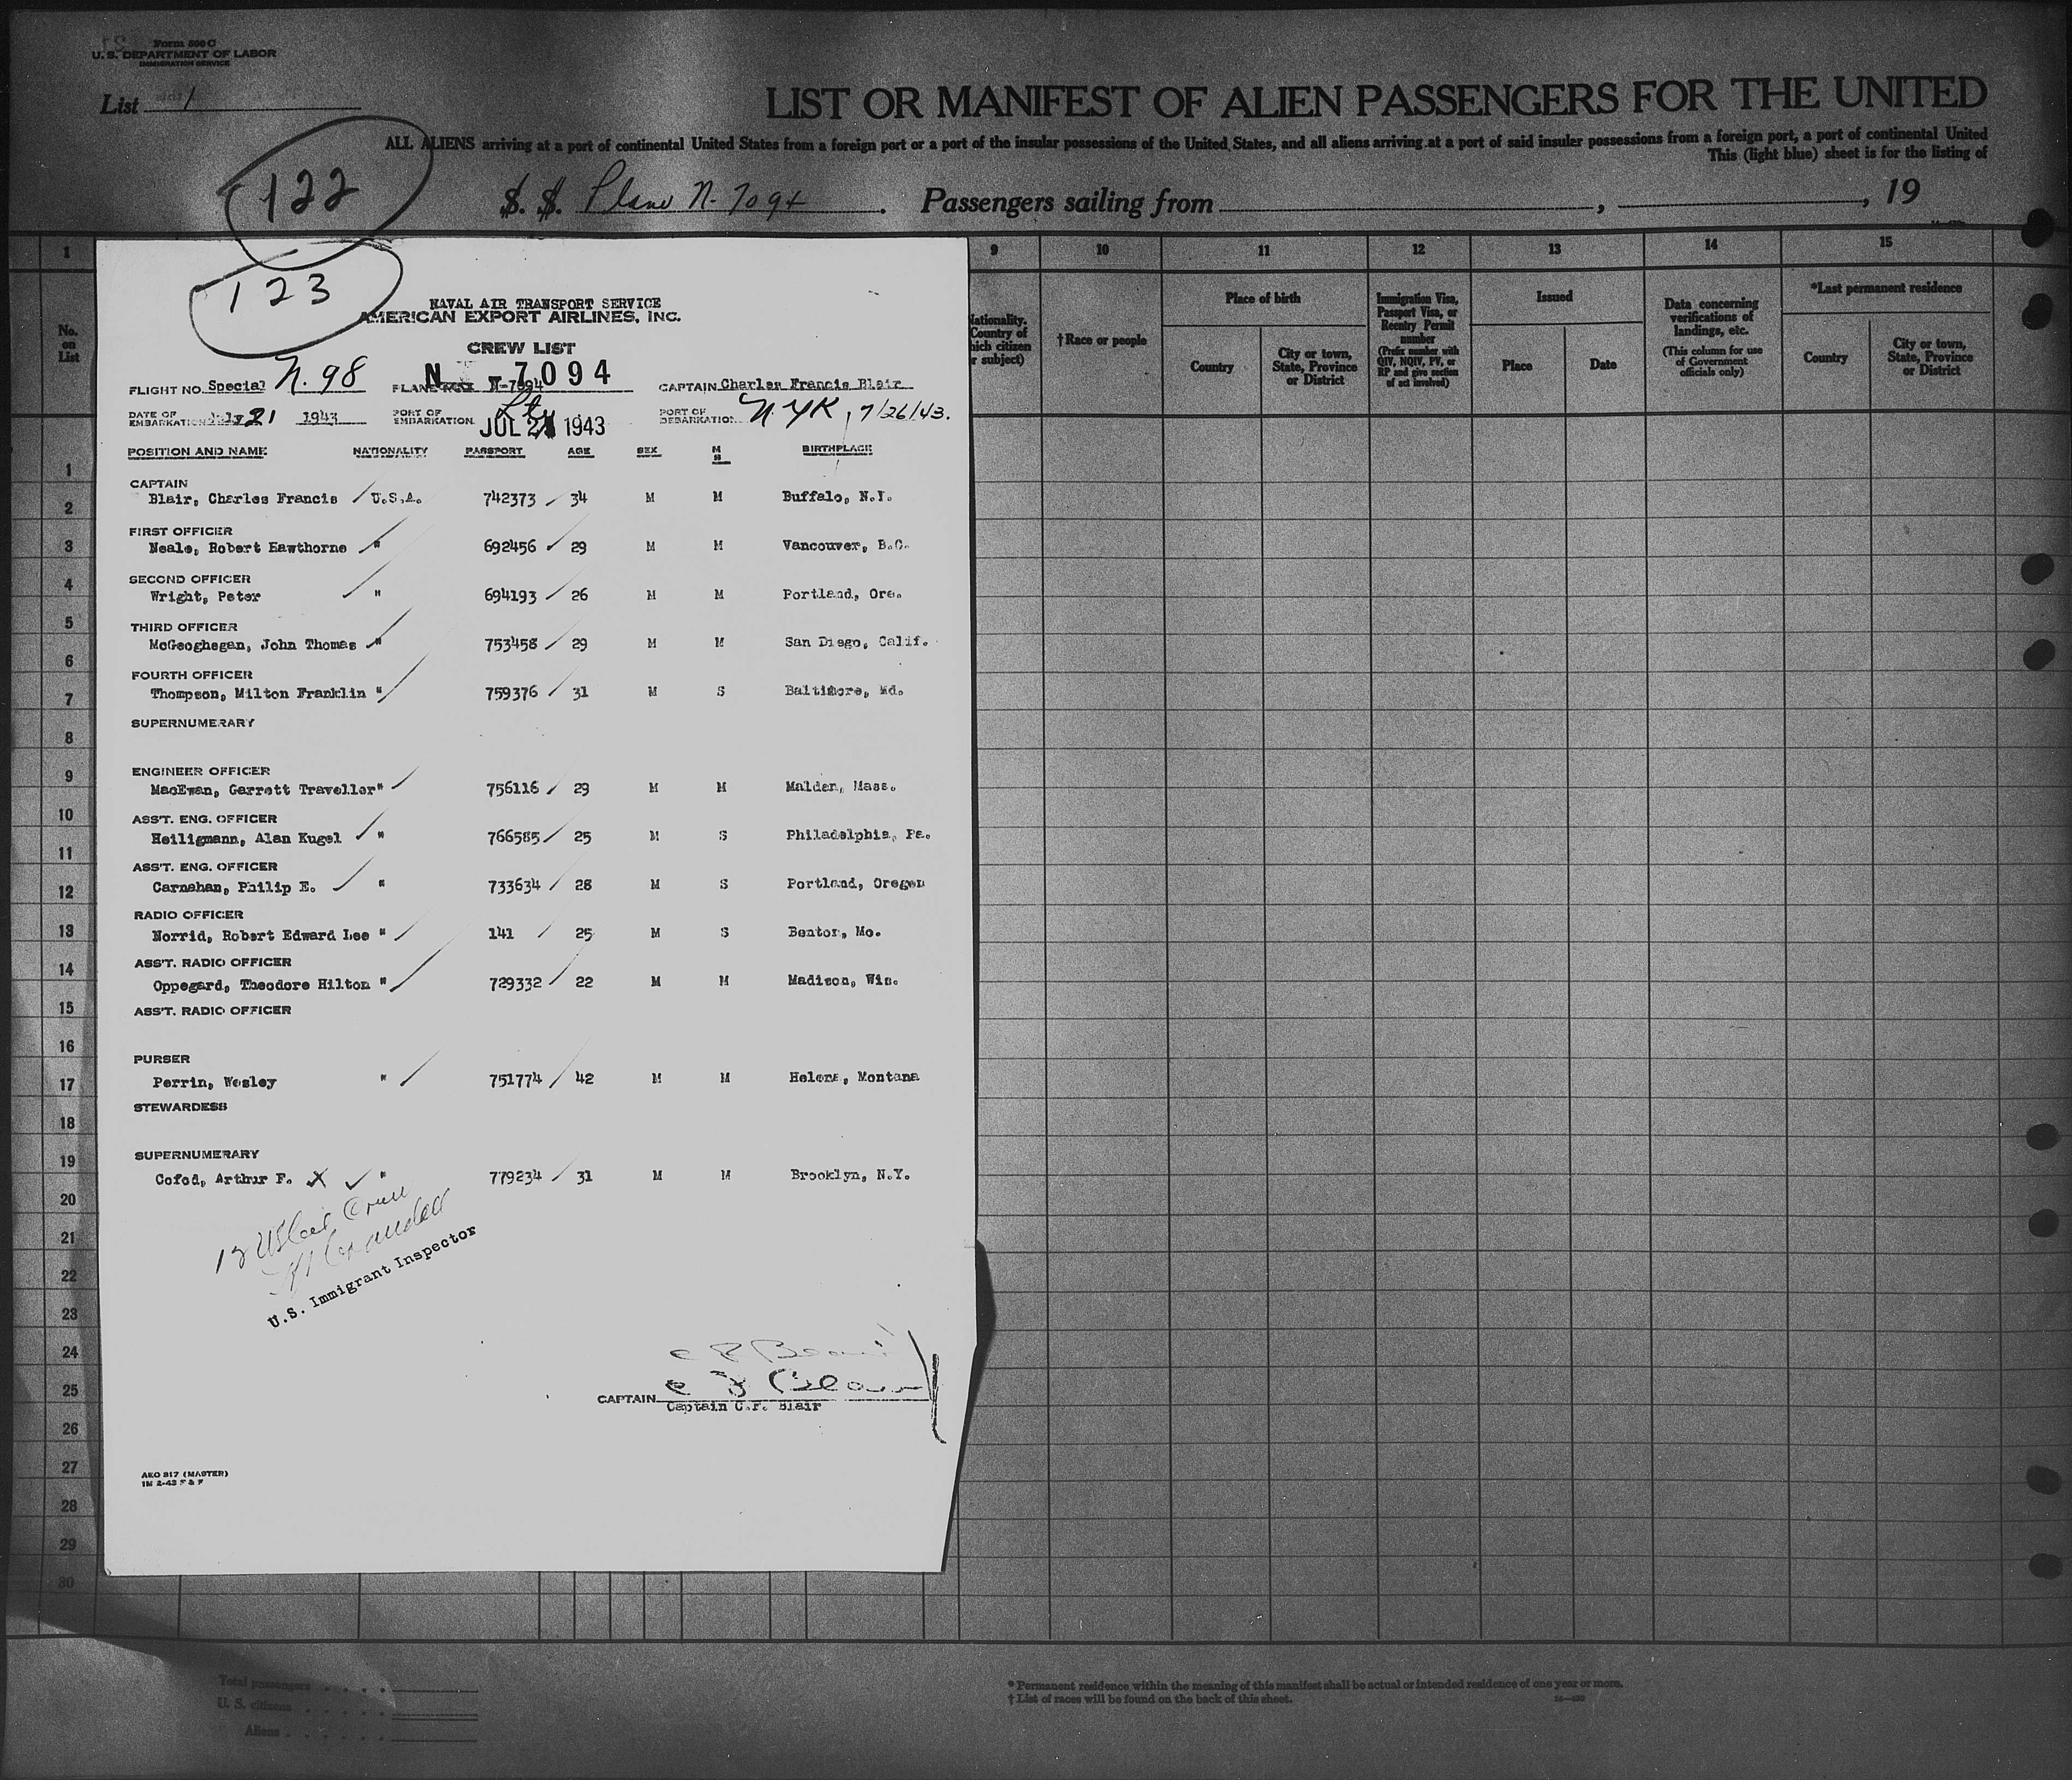 Form 500 C
U. S. DEPARTMENT OF LABOR
IMMIGRATION SERVICE
List 1
LIST OR MANIFEST OF ALIEN PASSENGERS FOR THE UNITED
ALL ALIENS arriving at a port of continental United States from a foreign port or a port of the insular possessions of the United States, and all aliens arriving at a port of said insular possessions from a foreign port, a port of continental United
This (light blue) sheet is for the listing of
122
S. S. Plane N. 7094. Passengers sailing from , , 19
1 9 10 11 12 13 14 15
No. on List
Nationality. Country of which citizen or subject)
†Race or people
Place of birth
Country
City or town, State, Province or District
Immigration Visa, Passport Visa, or Reentry Permit number
(Prefix number with QIV, NQIV, PV, or RP and give section of act involved)
Issued
Place
Date
Data concerning verifications of landings, etc.
(This column for use of Government officials only)
*Last permanent residence
Country
City or town, State, Province or District
123
NAVAL AIR TRANSPORT SERVICE
AMERICAN EXPORT AIRLINES, INC.
CREW LIST
FLIGHT NO. Special N. 98 PLANE N-7094 N 7094 CAPTAIN Charles Francis Blair
DATE OF EMBARKATION July 21 1943 PORT OF EMBARKATION JUL 21 1943 PORT OF DEBARKATION N.YK, 7/26/43.
POSITION AND NAME NATIONALITY PASSPORT AGE SEX M S BIRTHPLACE
CAPTAIN
Blair, Charles Francis U.S.A. 742373 34 M M Buffalo, N.Y.
FIRST OFFICER
Neale, Robert Hawthorne " 692456 29 M M Vancouver, B.C.
SECOND OFFICER
Wright, Peter " 694193 26 M M Portland, Ore.
THIRD OFFICER
McGeoghegan, John Thomas " 753458 29 M M San Diego, Calif.
FOURTH OFFICER
Thompson, Milton Franklin " 759376 31 M S Baltimore, Md.
SUPERNUMERARY
ENGINEER OFFICER
MacEwan, Garrett Traveller " 756116 29 M M Malden, Mass.
ASS'T. ENG. OFFICER
Heiligmann, Alan Kugel " 766585 25 M S Philadelphia, Pa.
ASS'T. ENG. OFFICER
Carnahan, Philip E. " 733634 28 M S Portland, Oregon
RADIO OFFICER
Norrid, Robert Edward Lee " 141 25 M S Benton, Mo.
ASS'T. RADIO OFFICER
Oppegard, Theodore Hilton " 729332 22 M M Madison, Wis.
ASS'T. RADIO OFFICER
PURSER
Perrin, Wesley " 751774 42 M M Helena, Montana
STEWARDESS
SUPERNUMERARY
Cofod, Arthur F. X " 779234 31 M M Brooklyn, N.Y.
U.S. Immigrant Inspector
C F Blair
C F Blair
CAPTAIN
Captain C.F. Blair
AEO 817 (MASTER)
1M 2-43 F & F
1
2
3
4
5
6
7
8
9
10
11
12
13
14
15
16
17
18
19
20
21
22
23
24
25
26
27
28
29
30
Total passengers
U. S. citizens
Aliens
* Permanent residence within the meaning of this manifest shall be actual or intended residence of one year or more.
† List of races will be found on the back of this sheet.